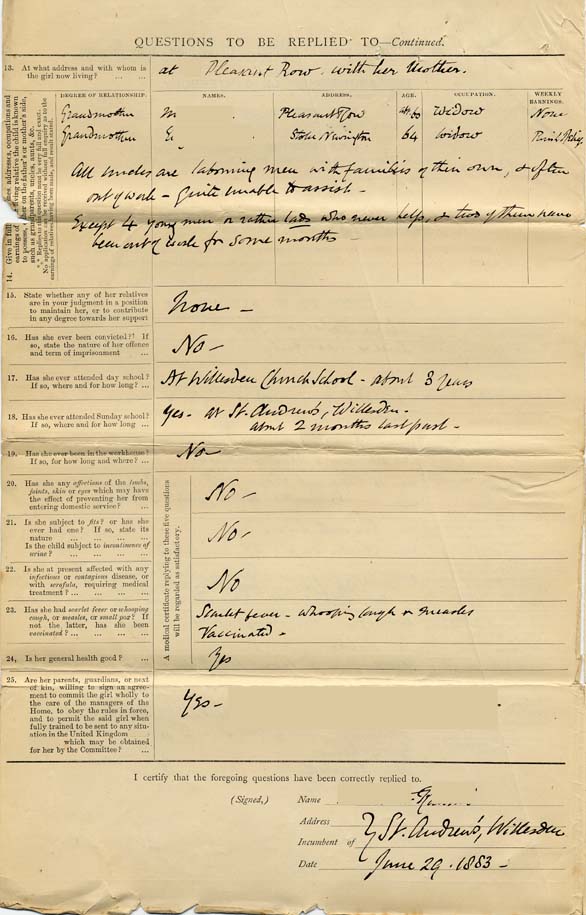 QUESTIONS TO BE REPLIED TO—Continued.
13. At what address and with whom is
the girl now living? ... ...
at Pleasant Row. with her Mother.
DEGREE OF RELATIONSHIP. NAMES. ADDRESS. AGE. OCCUPATION. WEEKLY
EARNINGS.
Grandmother M Pleasant Row 60 Widow None
Grandmother E. Stoke Newington 64 Widow Parish
All Uncles are labouring men with families of their own, & often
out of work – quite unable to assist –
Except 4 young men or rather lads who never help, & two of them have
been out of work for some months –
14. Give in full
15. State whether any of her relatives
are in your judgment in a position
to maintain her, or to contribute
in any degree towards her support
None –
16. Has she ever been convicted? If
so, state the nature of her offence
and term of imprisonment ...
No –
17. Has she ever attended day school?
If so, where and for how long? ...
At Willesden Church School – about 3 years
18. Has she ever attended Sunday school?
If so, where and for how long ...
Yes – at St. Andrew's, Willesden –
about 2 months last past –
19. Has she ever been in the workhouse?
If so, for how long and where? ...
No –
A medical certificate replying to these five questions
will be regarded as satisfactory.
20. Has she any affections of the limbs,
joints, skin or eyes which may have
the effect of preventing her from
entering domestic service? ...
No –
21. Is she subject to fits? or has she
ever had one? If so, state its
nature ... ... ... ...
Is the child subject to incontinence of
urine? ... ... ... ...
No –
22. Is she at present affected with any
infectious or contagious disease, or
with scrofula, requiring medical
treatment? ... ... ...
No
23. Has she had scarlet fever or whooping
cough, or measles, or small pox? If
not the latter, has she been
vaccinated? ... ... ...
Scarlet fever – whooping cough & measles
Vaccinated –
24. Is her general health good? ...
Yes
25. Are her parents, guardians, or next
of kin, willing to sign an agree-
ment to commit the girl wholly to
the care of the managers of the
Home, to obey the rules in force,
and to permit the said girl when
fully trained to be sent to any situ-
ation in the United Kingdom
which may be obtained
for her by the Committee? ...
Yes –
I certify that the foregoing questions have been correctly replied to.
(Signed,) Name
Address
Incumbent of St. Andrew's, Willesden
Date June 29. 1883 –